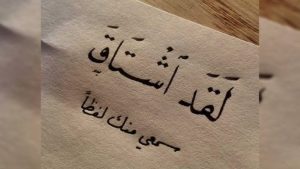 لَقَد اَشْتَاقَ
مسمعي منك لفظاً